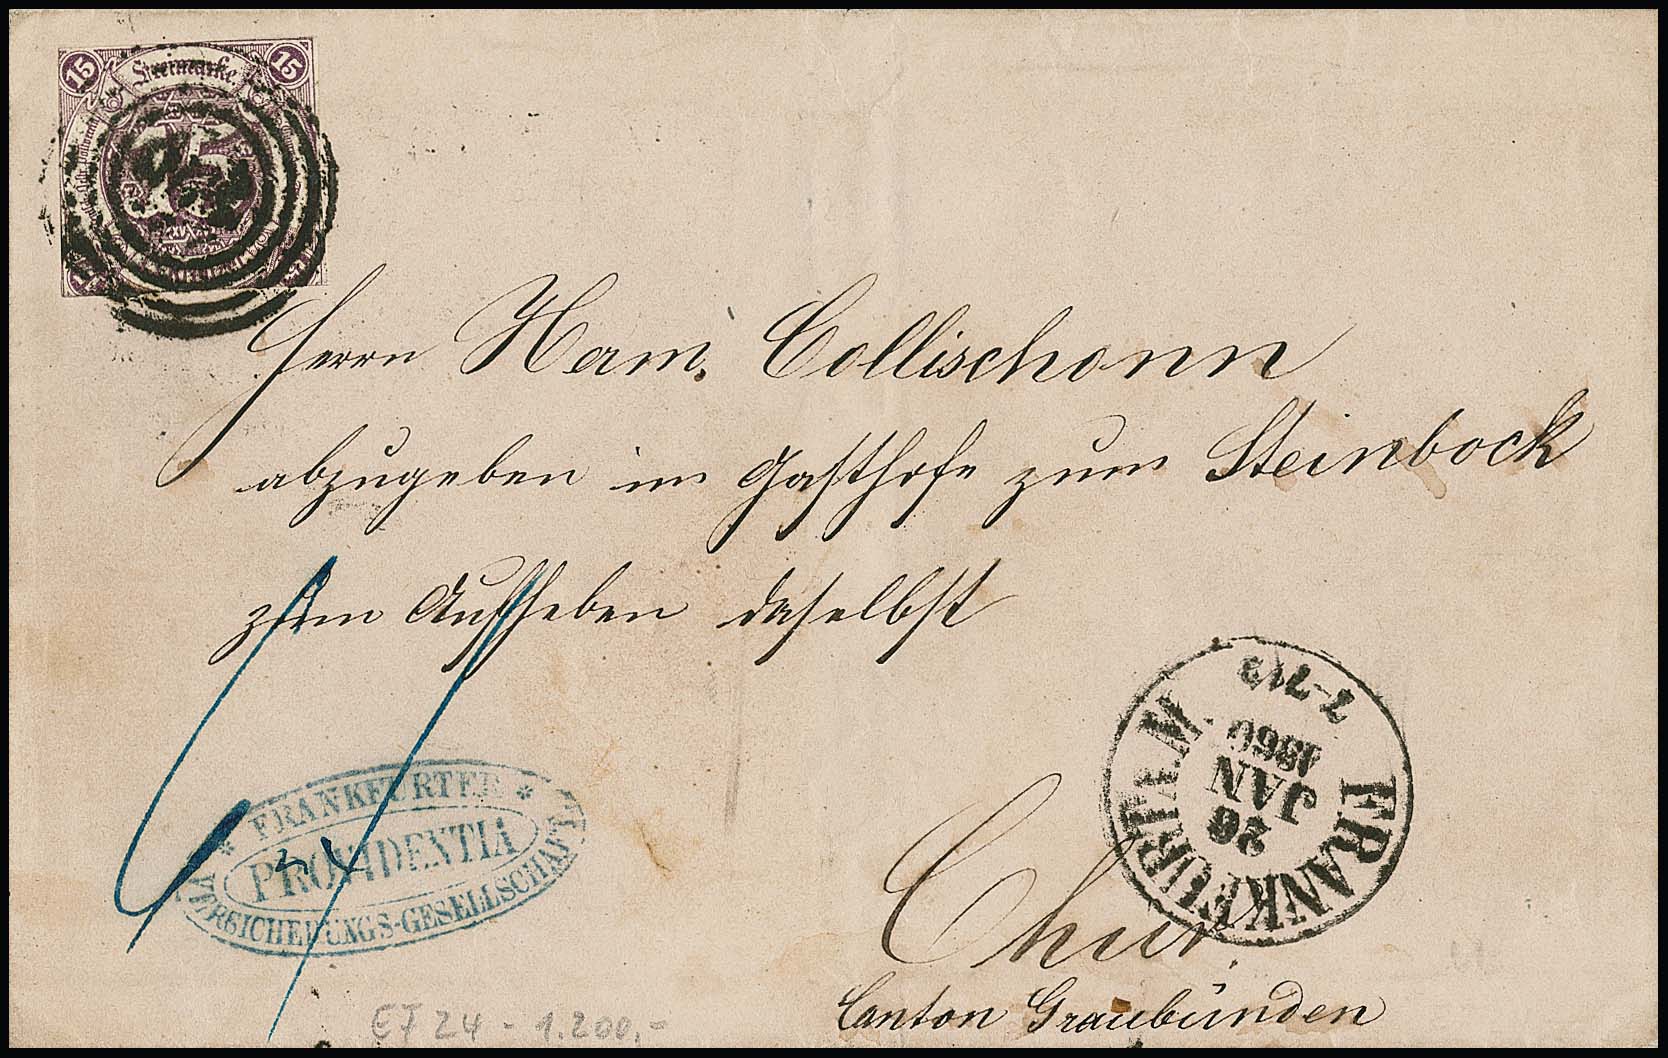 15 Freimarke. 15
Herrn Herm. Collischonn
abzugeben im Gasthofe zum Steinbock
zum Aufheben daselbst
FRANKFURT A. M.
7-7½
1860
JAN
26
* FRANKFURTER *
PROVIDENTIA
VERSICHERUNGS-GESELLSCHAFT
Chur.
Canton Graubünden
EF 24 - 1.200,-